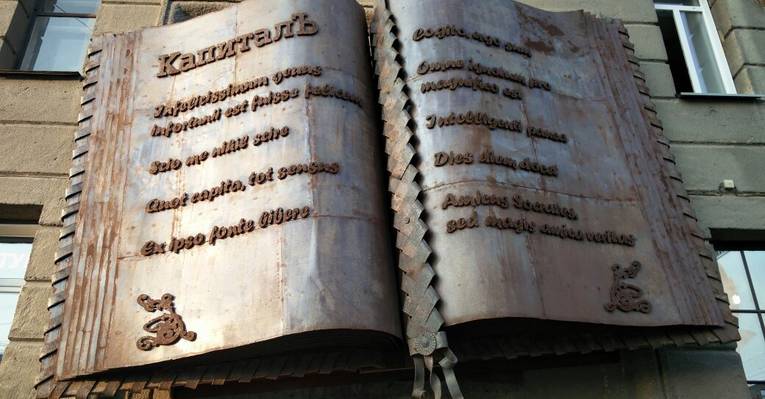 КапиталЪ
Infelicissimum genus
infortunii est fuisse felicem
Scio me nihil scire
Quot capita, tot sensus
Ex ipso fonte bibere
Cogito, ergo sum
Omne ignotum pro
magnifico est
Intelligenti pauca
Dies diem docet
Amicus Socrates,
sed magis amica veritas